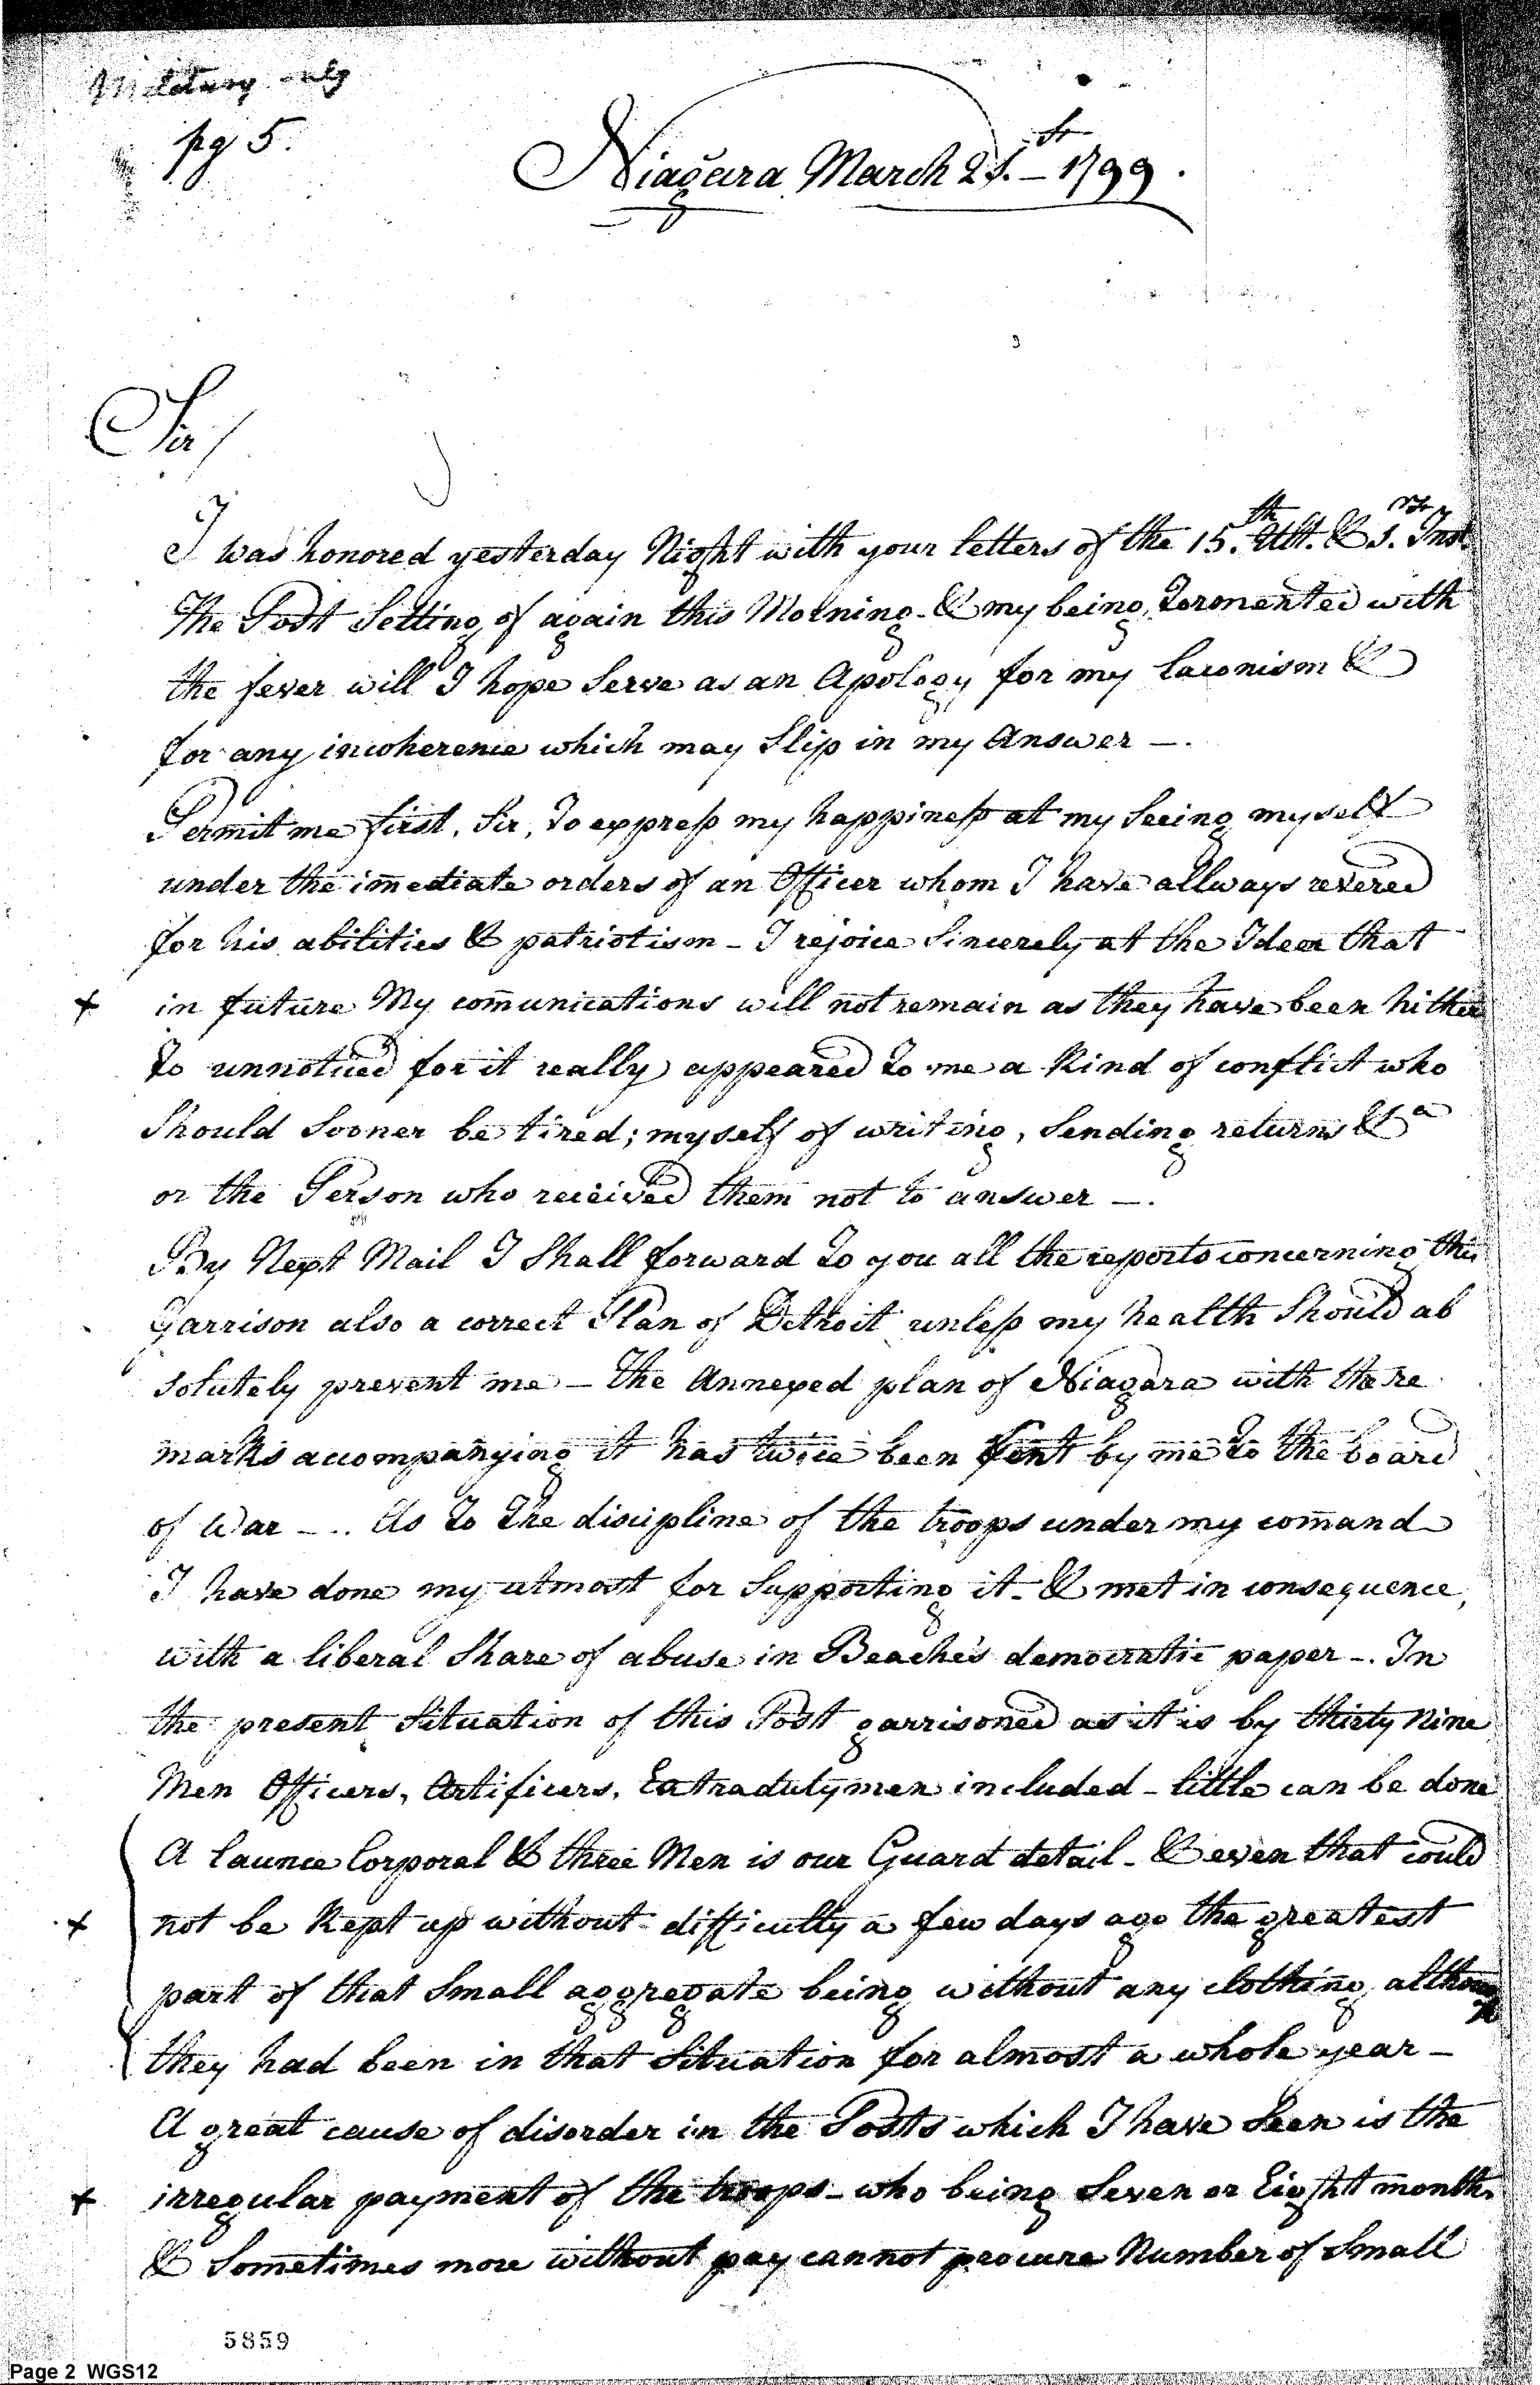 Military only
pg 5.
Niagara March 21.st - 1799.
Sir/
I was honored yesterday Night with your letters of the 15.th Ult. & 1.rst Inst.
The Post Setting of again this Morning - & my being Tormented with
the fever will I hope Serve as an Apology for my laconism &
for any incoherence which may Slip in my Answer —.
Permit me first, Sir, To express my happiness at my Seeing myself
under the im̄ediate orders of an Officer whom I have allways revered
for his abilities & patriotism - I rejoice Sincerely at the Idea that
+ in future My com̄unications will not remain as they have been hither
to unnoticed for it really appeared to me a Kind of conflict who
Should Sooner be tired; myself of writing, Sending returns &a
or the Person who received them not to answer —.
By Next Mail I Shall forward To you all the reports concerning this
Garrison also a correct Plan of Detroit unless my health Should ab
solutely prevent me — The Annexed plan of Niagara with the re
marks accompanying it has twice been sent by me to the board
of War - .. As To The discipline of the troops under my com̄and
I have done my utmost for Supporting it - & met in consequence,
with a liberal Share of abuse in Beache's democratic paper -. In
the present Situation of this Post garrisoned as it is by thirty Nine
Men Officers, Artificers, Extradutymen included - little can be done
A launce Corporal & three Men is our Guard detail - & even that could
+ not be Kept up without difficulty a few days ago the greatest
part of that Small aggregate being without any clothing although
they had been in that Situation for almost a whole year -
A great cause of disorder in the Posts which I have Seen is the
+ irregular payment of the troops - who being Seven or Eight months
& Sometimes more without pay cannot procure Number of Small
5859
Page 2 WGS12